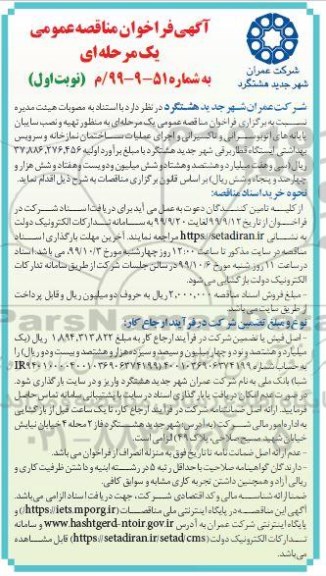 آگهی فراخوان مناقصه عمومی
یک مرحله‌ای
به شماره ۵۱-۹-۹۹/م (نوبت اول)
شرکت عمران
شهر جدید هشتگرد
شرکت عمران شهر جدید هشتگرد در نظر دارد با استناد به مصوبات هیئت مدیره
نسبت به برگزاری فراخوان مناقصه عمومی یک مرحله‌ای به منظور تهیه و نصب سایبان
پایانه های اتوبوسرانی و تاکسیرانی و اجرای عملیات ساختمان نمازخانه و سرویس
بهداشتی ایستگاه قطار برقی شهر جدید هشتگرد با مبلغ برآورد اولیه ۳۷,۸۸۶,۲۷۶,۴۵۶
ریال (سی و هفت میلیارد و هشتصد و هشتاد و شش میلیون و دویست و هفتاد و شش هزار و
چهارصد و پنجاه و شش ریال) بر اساس قانون برگزاری مناقصات به شرح ذیل اقدام نماید.
نحوه خرید اسناد مناقصه:
از کلیه تامین کنندگان دعوت به عمل می آید برای دریافت اسناد شرکت در
فراخوان از تاریخ ۹۹/۹/۱۲ لغایت ۹۹/۹/۲۰ به سامانه تدارکات الکترونیک دولت
به نشانی https://setadiran.ir مراجعه نمایند. آخرین مهلت بارگذاری اسناد
مناقصه در سایت مذکور تا ساعت ۱۲:۰۰ روز چهارشنبه مورخ ۹۹/۱۰/۳ می باشد. اسناد
در ساعت ۱۱ روز شنبه مورخ ۹۹/۱۰/۶ در سالن جلسات شرکت از طریق سامانه تدارکات
الکترونیک دولت بازگشایی می شود.
- مبلغ فروش اسناد مناقصه ۲,۰۰۰,۰۰۰ ریال به حروف دو میلیون ریال و قابل پرداخت
از طریق سایت می باشد.
نوع و مبلغ تضمین شرکت در فرآیند ارجاع کار:
- اصل فیش یا تضمین شرکت در فرآیند ارجاع کار به مبلغ ۱,۸۹۴,۳۱۳,۸۲۲ ریال (یک
میلیارد و هشتصد و نود و چهار میلیون و سیصد و سیزده هزار و هشتصد و بیست و دو ریال) را
به حساب شماره
نزد بانک ملی به نام شرکت عمران شهر جدید هشتگرد واریز و در سایت بارگذاری شود.
به اداره امور مالی شرکت (به آدرس: شهر جدید هشتگرد فاز ۲ محله ۴ خیابان نیایش
خیابان شهید مسیح صلاحی، پلاک ۴۹) الزامی است.
- عدم ارائه اصل ضمانت نامه تا تاریخ فوق به منزله انصراف از فراخوان می باشد.
- دارندگان گواهینامه صلاحیت با حداقل رتبه ۵ در رشته ابنیه و داشتن ظرفیت کاری و
ریالی آزاد و همچنین داشتن تجربه کاری مشابه و سوابق کافی.
ضمنا ارائه شناسه ملی و کد اقتصادی شرکت، جهت دریافت اسناد الزامی می باشد.
آگهی این مناقصه در پایگاه اینترنتی ملی مناقصات (https://iets.mporg.ir) و
پایگاه اینترنتی شرکت عمران به آدرس www.hashtgerd-ntoir.gov.ir و سامانه
تدارکات الکترونیک دولت (https://setadiran.ir/setad/cms) قابل مشاهده
می باشد.